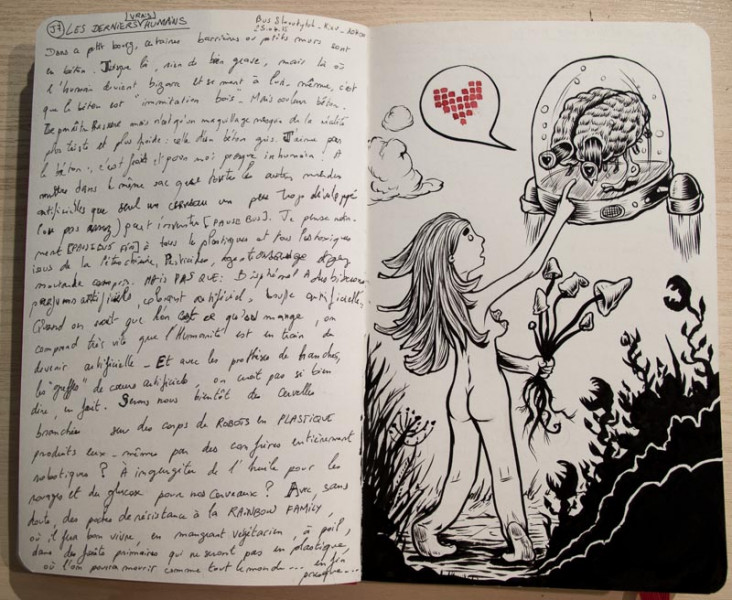 37 LES DERNIERS (VRAIS) HUMAINS
Bus Slavutytch - Kiev
Dans ce petit bourg, certaines barrières ou petits murs sont
en béton. Jusque là, rien de bien grave, mais là où
l'humain devient bizarre et se ment à lui-même, c'est
que le béton est "immitation bois". Mais oui du béton.
mais n'est qu'un maquillage masque de la réalité
plus triste et plus froide : celle d'un béton gris. J'aime pas
le béton, c'est froid, et pour moi presque inhumain ! À
mettre dans le même sac que toutes les autres merdes
artificielles que seul un cerveau un peu trop développé
(ou pas assez) peut inventer [PAUSE BUS]. Je pense notam-
ment [PAUSE BUS FIN] à tous les plastiques et tous les toxiques
issus de la pétrochimie, Pesticides,
moutarde compris. MAIS PAS QUE : Bisphénol A des biberons
parfums artificiels, colorant artificiel, bouffe artificielle,
Quand on sait que l'on est ce qu'on mange, on
comprend très vite que l'Humanité est en train de
devenir artificielle - Et avec les prothèses de hanches,
les "greffes" de cœurs artificiels, on croit pas si bien
dire, en fait. Serons nous bientôt des Cervelles
branchées sur des corps de ROBOTS en PLASTIQUE
produits eux-même par des confrères entièrement
robotiques ? À ingurgiter de l'huile pour les
rouages et du glucose pour nos cerveaux ? Avec, sans
doute, des poches de résistance à la RAINBOW FAMILY,
où il fera bon vivre, en mangeant végétarien, à poil,
dans des forêts primaires qui ne seront pas en plastique,
où l'on pourra mourir comme tout le monde... en fin
presque...